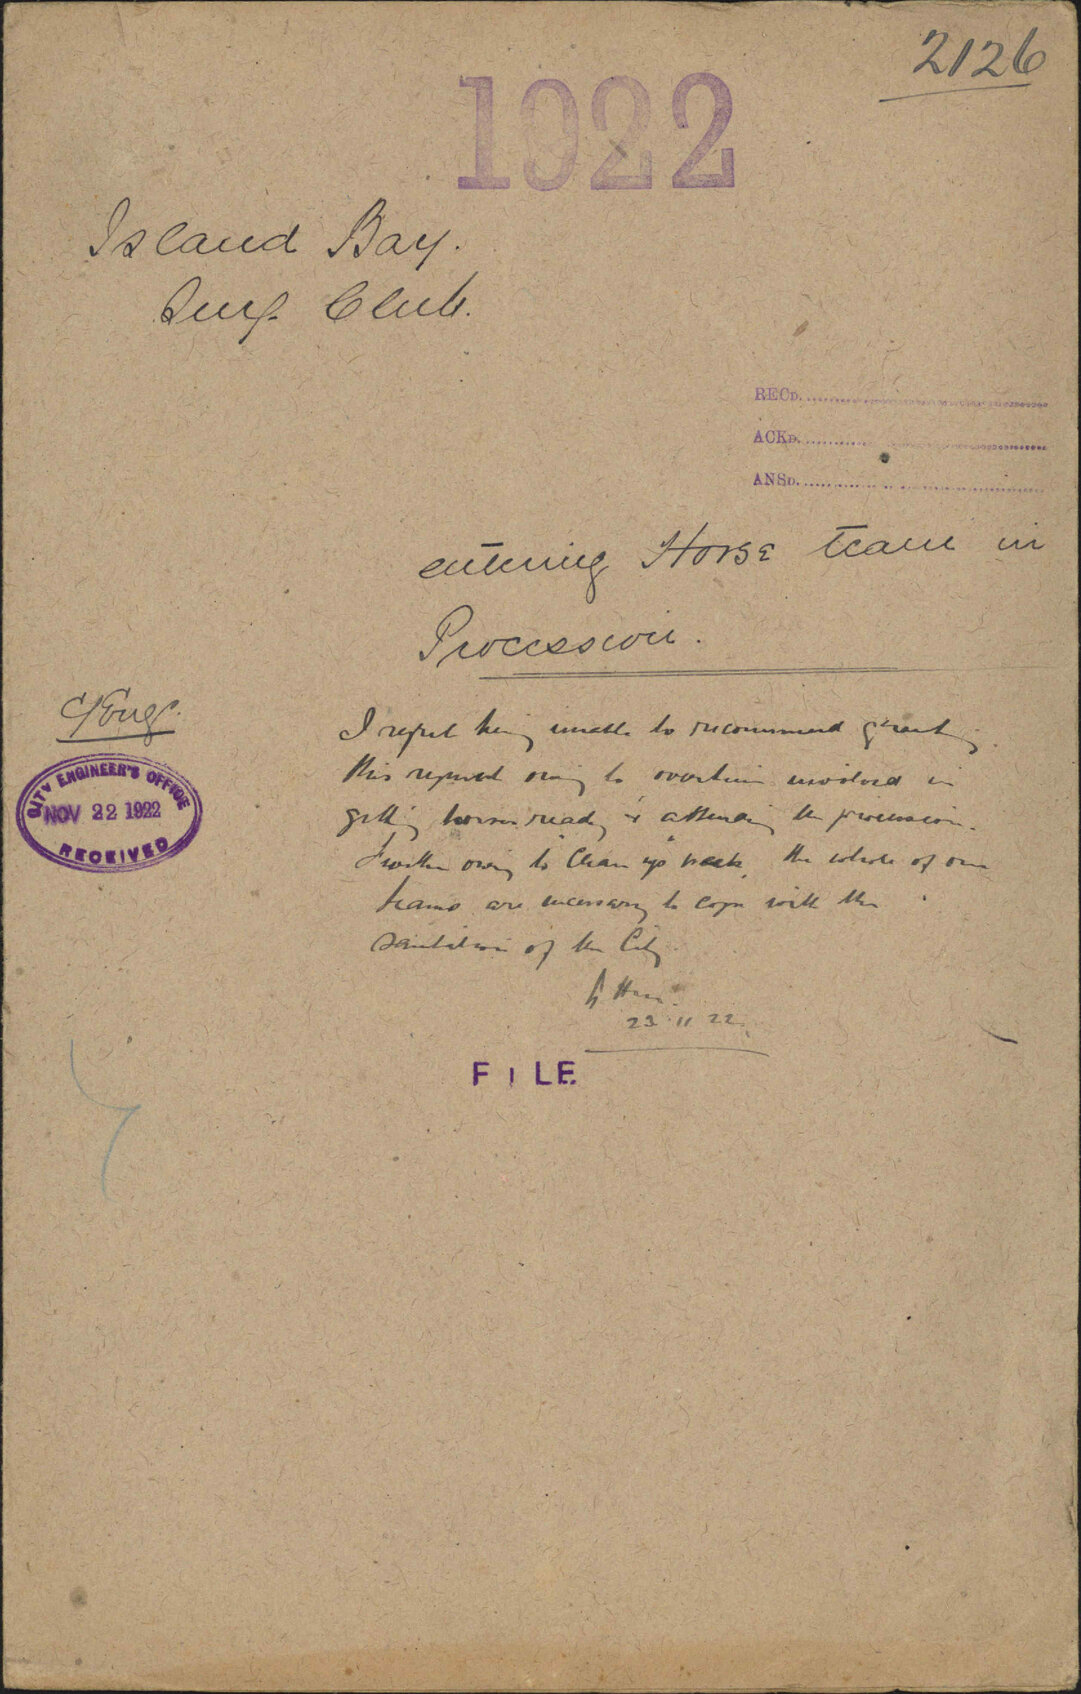 2126
1922
Island Bay.
Surf. Club.
RECD.
ACKD.
ANSD.
entering Horse team in
Procession.
C/Engr.
CITY ENGINEER'S OFFICE
NOV 22 1922
RECEIVED
I regret being unable to recommend granting
this request owing to overtime involved in
getting horses ready & attending the procession.
Further owing to "Clean up" week, the whole of our
teams are necessary to cope with the
sanitation of the City.
23.11.22.
FILE